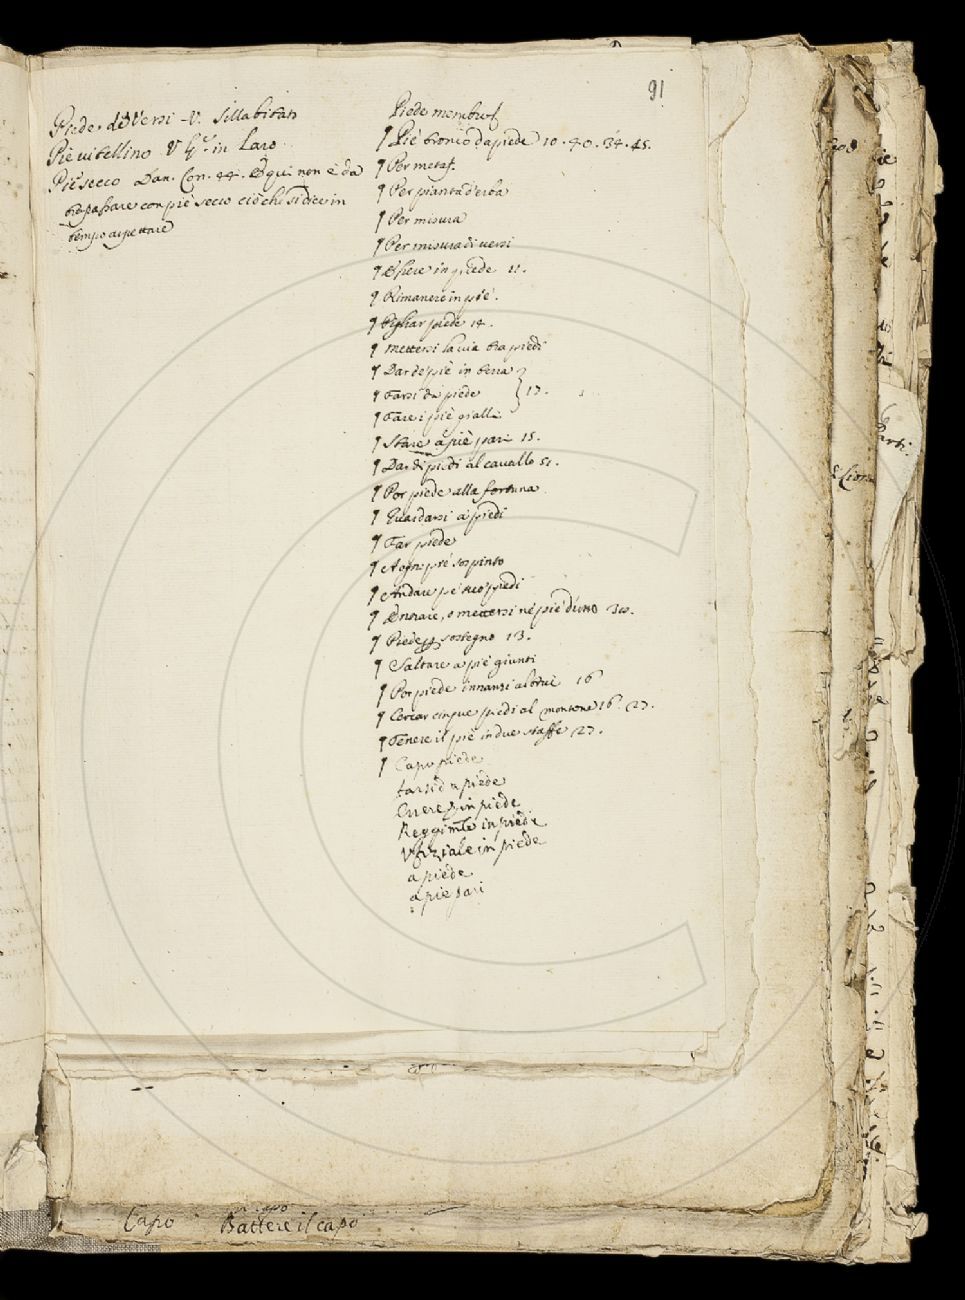 91
Piede de Versi - V. Sillabitati
Piè vitellino V in Laro
Piè secco Dan. Con. 44. E qui non è da
trapassare con piè secco ciò che si dice in
tempo aspettare
Piede membro
¶ Piè tronco da piede 10. 40. 34. 45.
¶ Per metaf.
¶ Per pianta d'erba
¶ Per misura
¶ Per misura di versi
¶ Essere in piede 11.
¶ Rimanere in piè.
¶ Pigliar piede 14.
¶ Mettersi la via tra piedi
¶ Dar de piè in terra
¶ Farsi da piede } 17.
¶ Fare i piè gialli
¶ Stare a piè pari 15.
¶ Dar di piedi al cavallo 51.
¶ Por piede alla fortuna
¶ Guardarsi a piedi
¶ Far piede
¶ A ogni piè sospinto
¶ Andare pe suo' piedi
¶ Entrare, o mettersi ne piè d'uno 30.
¶ Piede sostegno 13.
¶ Saltare a piè giunti
¶ Por piede innanzi altrui 16
¶ Cercar cinque piedi al montone 16. 27.
¶ Tenere il piè in due staffe 27.
¶ Capo piede
farsi da piede
Essere in piede
Reggimte in piede
Vfiziale in piede
a piede
a pie pari
Capo Battere il capo